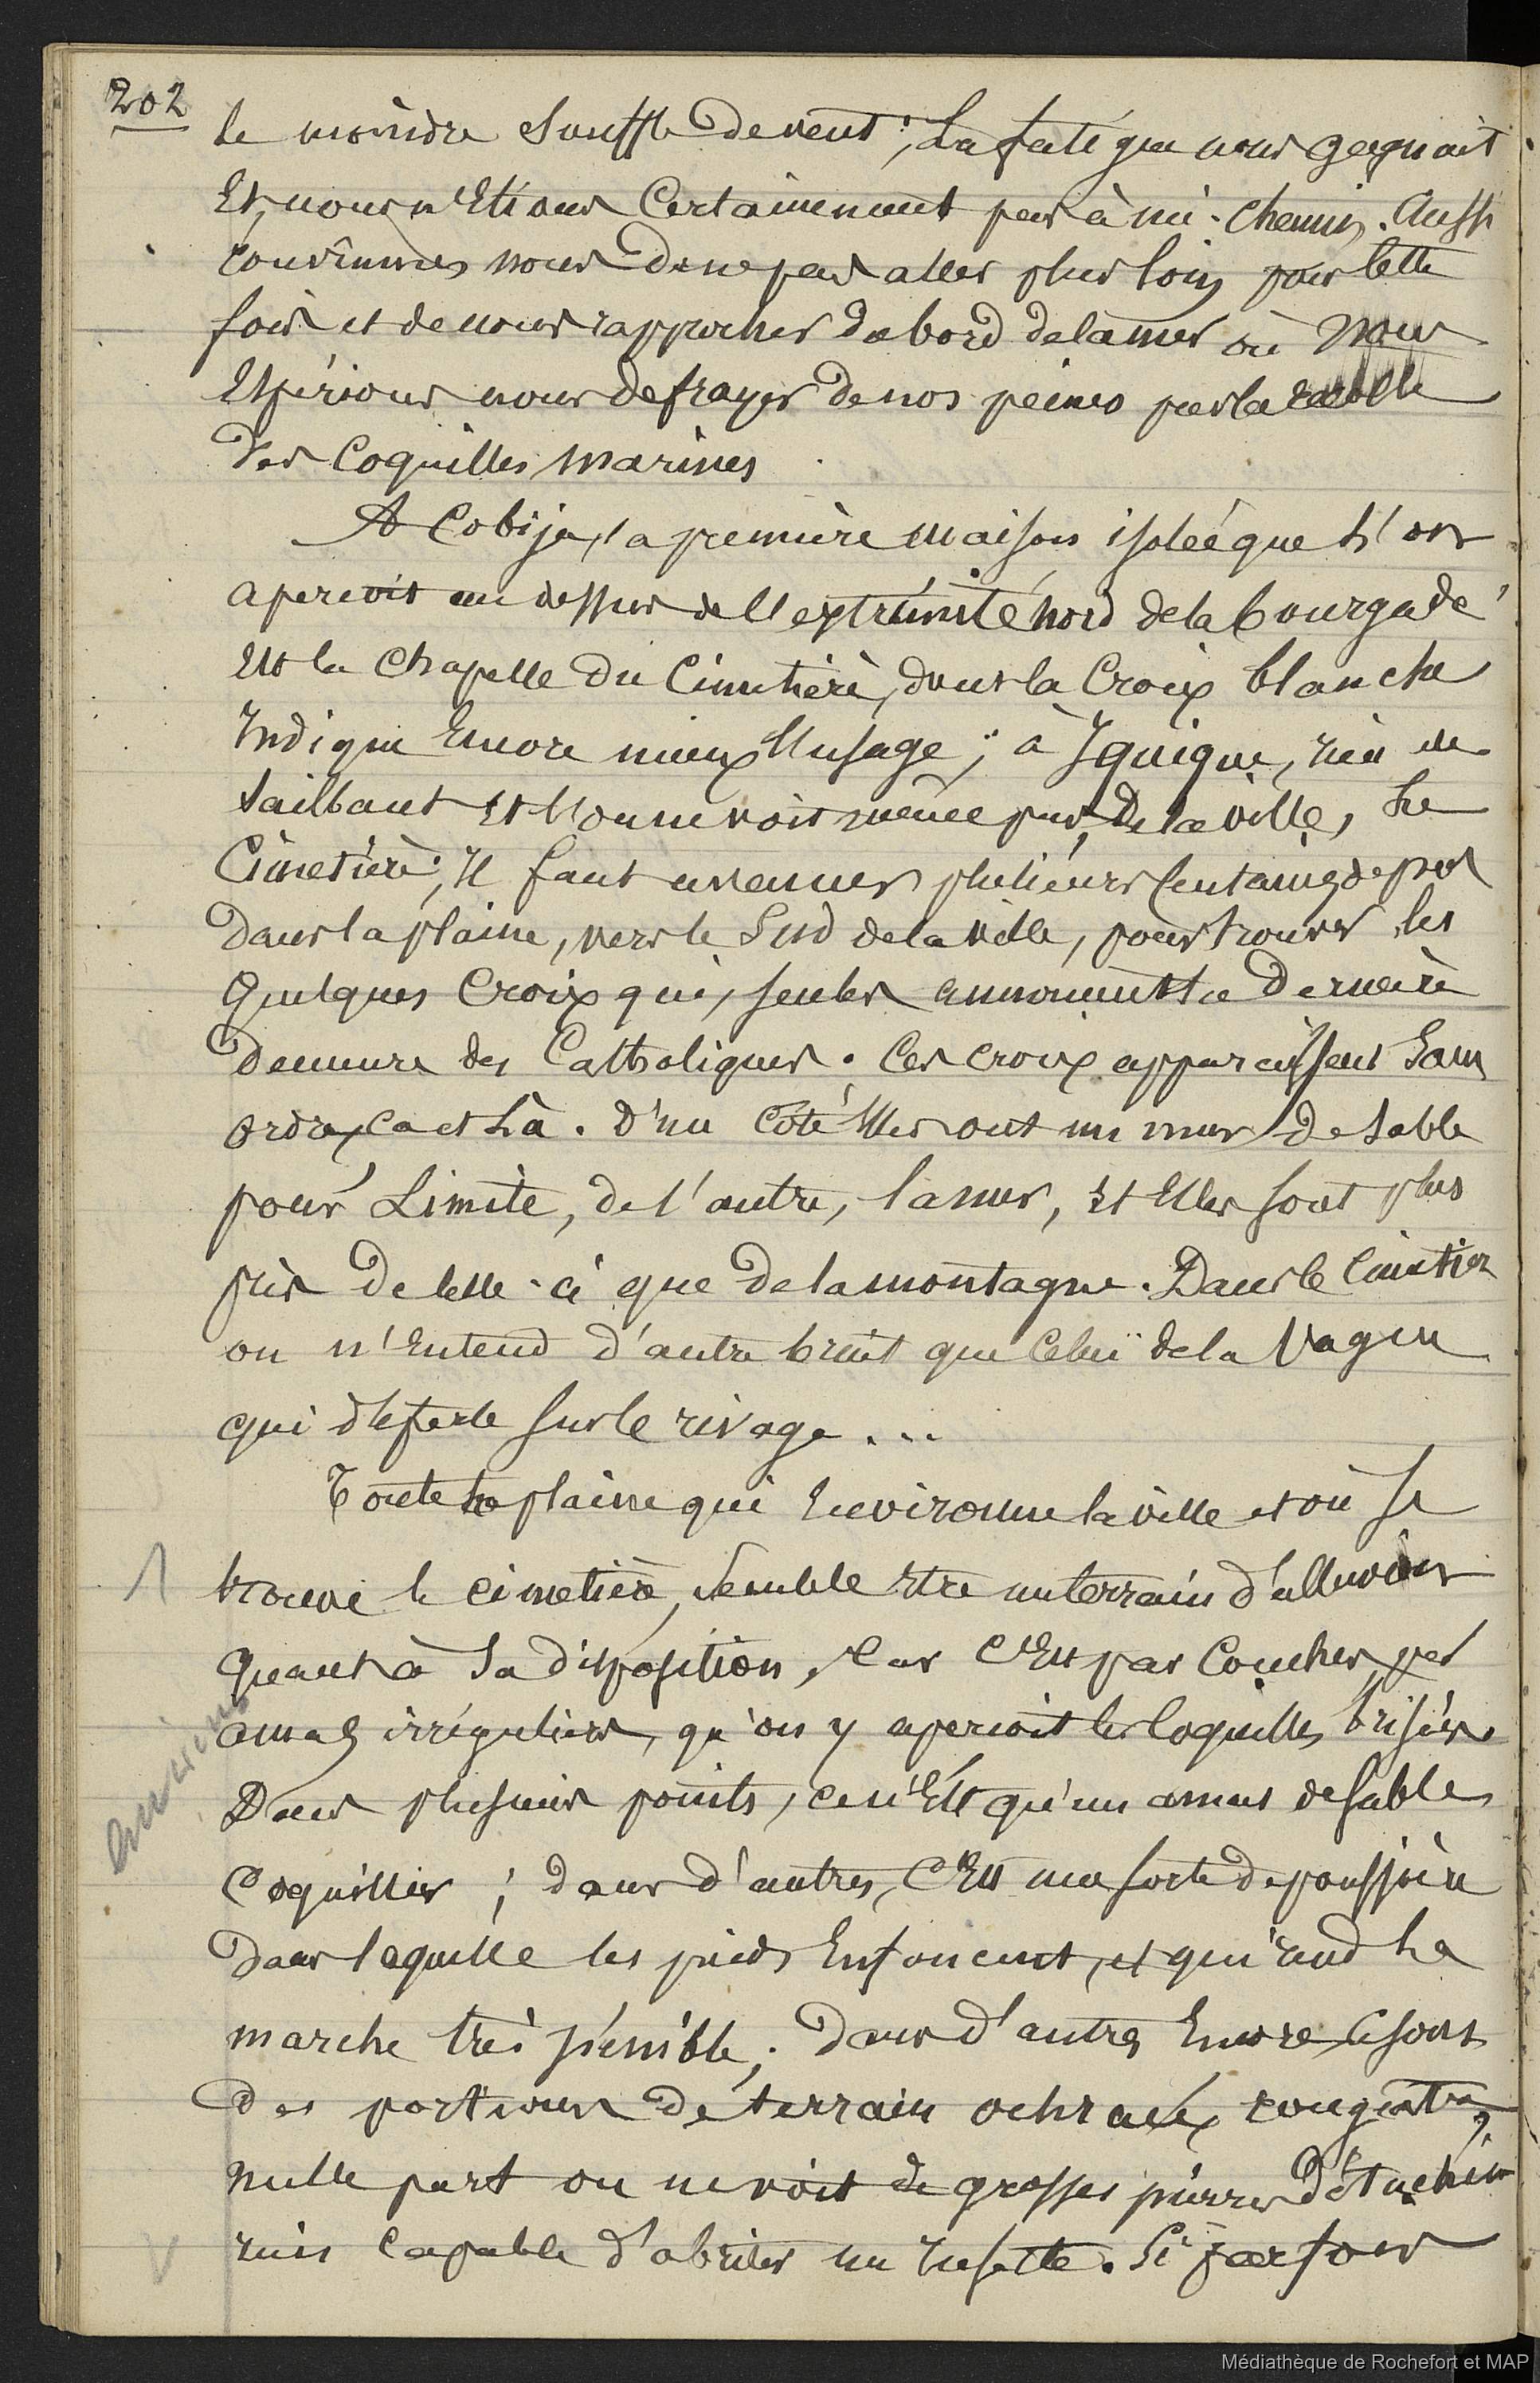 202
le moindre souffle de vent ; La fatigue nous gagnait
Et nous n'Etions Certainement pas à mi-chemin. Aussi
convînmes nous de ne pas aller plus loin pour cette
fois et de nous rapprocher d'abord de la mer où Nous
Espérions nous defrayer de nos peines par la récolte
des Coquilles marines.
A Cobija, la première maison isolée que L'on
aperçoit au dessus de l'extrémité nord de la bourgade
Est la Chapelle du Cimetière, dont la Croix blanche
Indique Encore mieux l'usage ; à Iquique, rien de
saillant Et l'on ne voit même pas, de la ville, Le
Cimetière ; Il faut avancer plusieurs Centaines de pas
Dans la plaine, vers le Sud de la ville, pour trouver les
Quelques Croix qui, seules annoncent la Dernière
Demeure des Catholiques. Ces croix apparaissent sans
ordre, çà et Là. D'un Côté Elles ont un mur de sable
pour Limite, de l'autre, la mer, Et Elles sont plus
près de Celle-ci que de la montagne. Dans le Cimetière
on n'Entend d'autre bruit que Celui de la Vague
qui déferle sur le rivage...
Toute la plaine qui Environne la ville et où se
trouve le cimetière, semble Etre un terrain d'alluvions
Quant à sa disposition, Car C'Est par Couches, par
amas irréguliers, qu'on y aperçoit les Coquilles brisées.
Dans plusieurs points, ce n'Est qu'un amas de sable
Coquillier ; dans d'autres, C'Est une sorte de poussière
Dans laquelle les pieds Enfoncent, et qui rend La
marche très pénible ; dans d'autres Encore, ce sont
Des portions de terrain ochracé, rougeâtre,
nulle part on ne voit de grosses pierres Détachées
rien capable d'abriter un Insecte. Si parfois